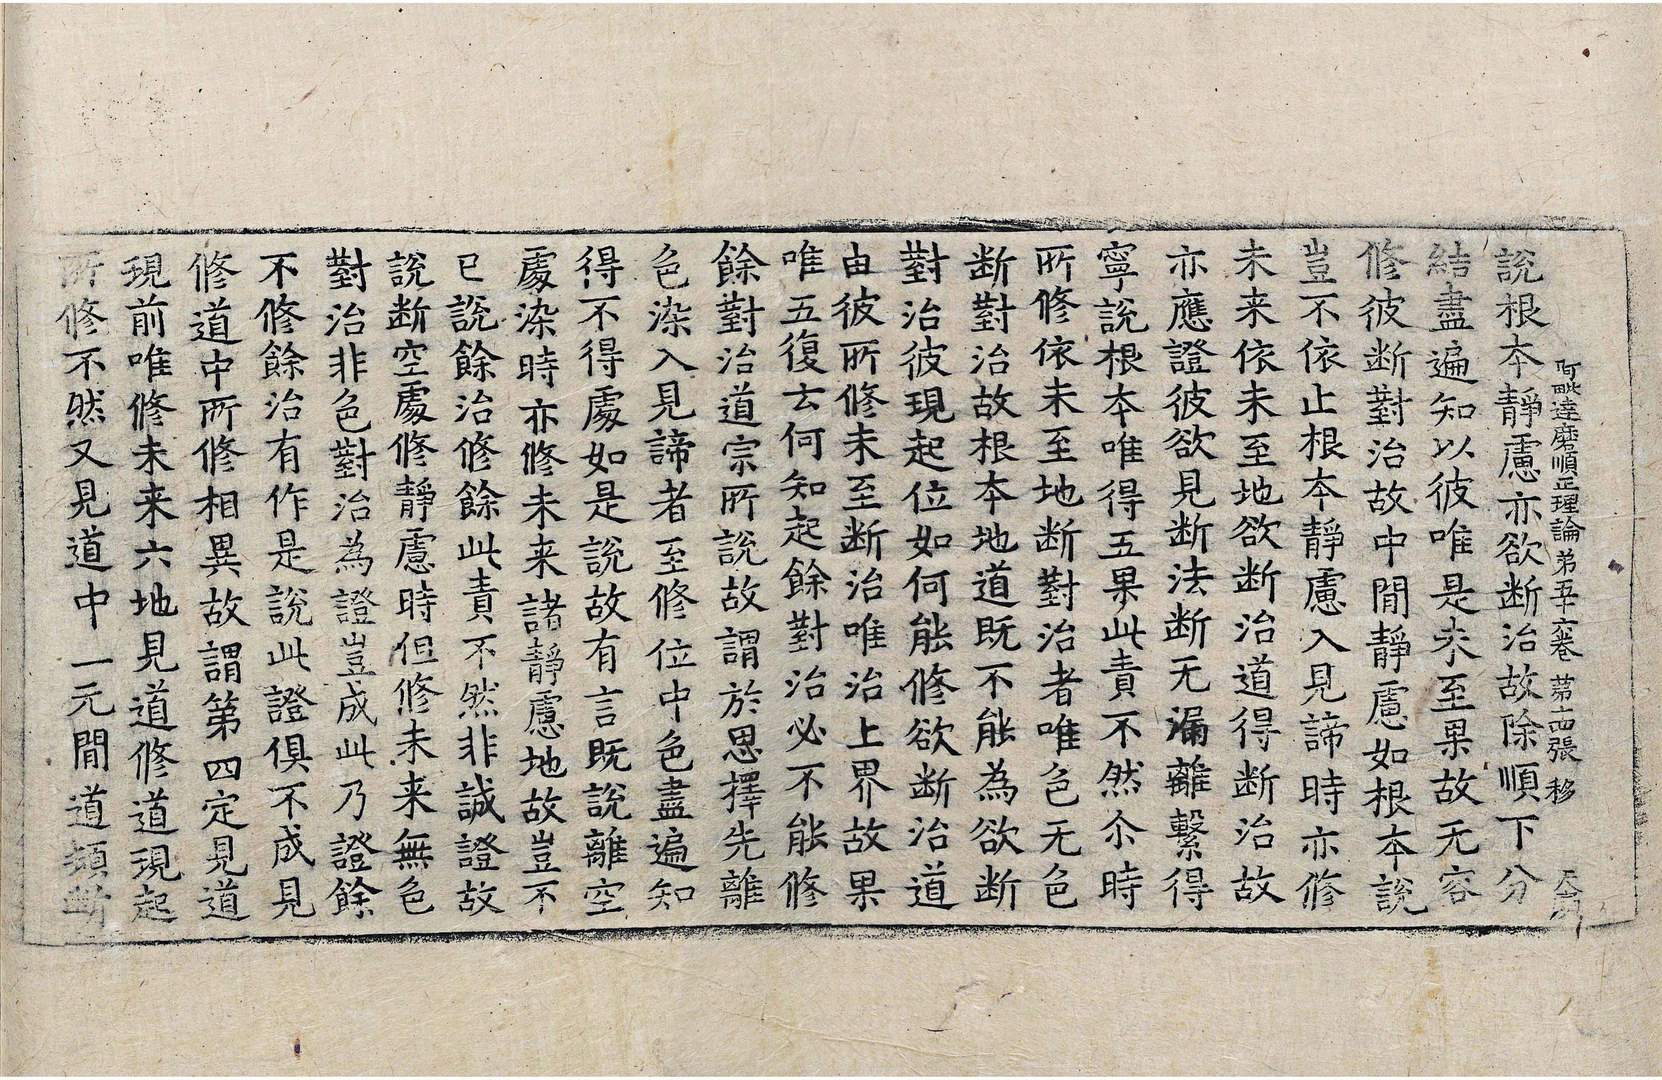 阿毗達磨順正理論第五十六卷 第十四張 移
說根本靜慮亦欲断治故除順下分
結盡遍知以彼唯是未至果故无容
修彼断對治故中閒靜慮如根本說
豈不依止根本靜慮入見諦時亦修
未来依未至地欲断治道得断治故
亦應證彼欲見断法断无漏離繫得
寧說根本唯得五果此責不然尒時
所修依未至地断對治者唯色无色
断對治故根本地道既不能為欲断
對治彼現起位如何能修欲断治道
由彼所修未至断治唯治上界故果
唯五復云何知起餘對治必不能修
餘對治道宗所說故謂於思擇先離
色染入見諦者至修位中色盡遍知
得不得處如是說故有言既說離空
處染時亦修未来諸靜慮地故豈不
已說餘治修餘此責不然非誠證故
說断空處修靜慮時但修未来無色
對治非色對治為證豈成此乃證餘
不修餘治有作是說此證俱不成見
修道中所修相異故謂第四定見道
現前唯修未来六地見道修道現起
所修不然又見道中一元閒道頻断